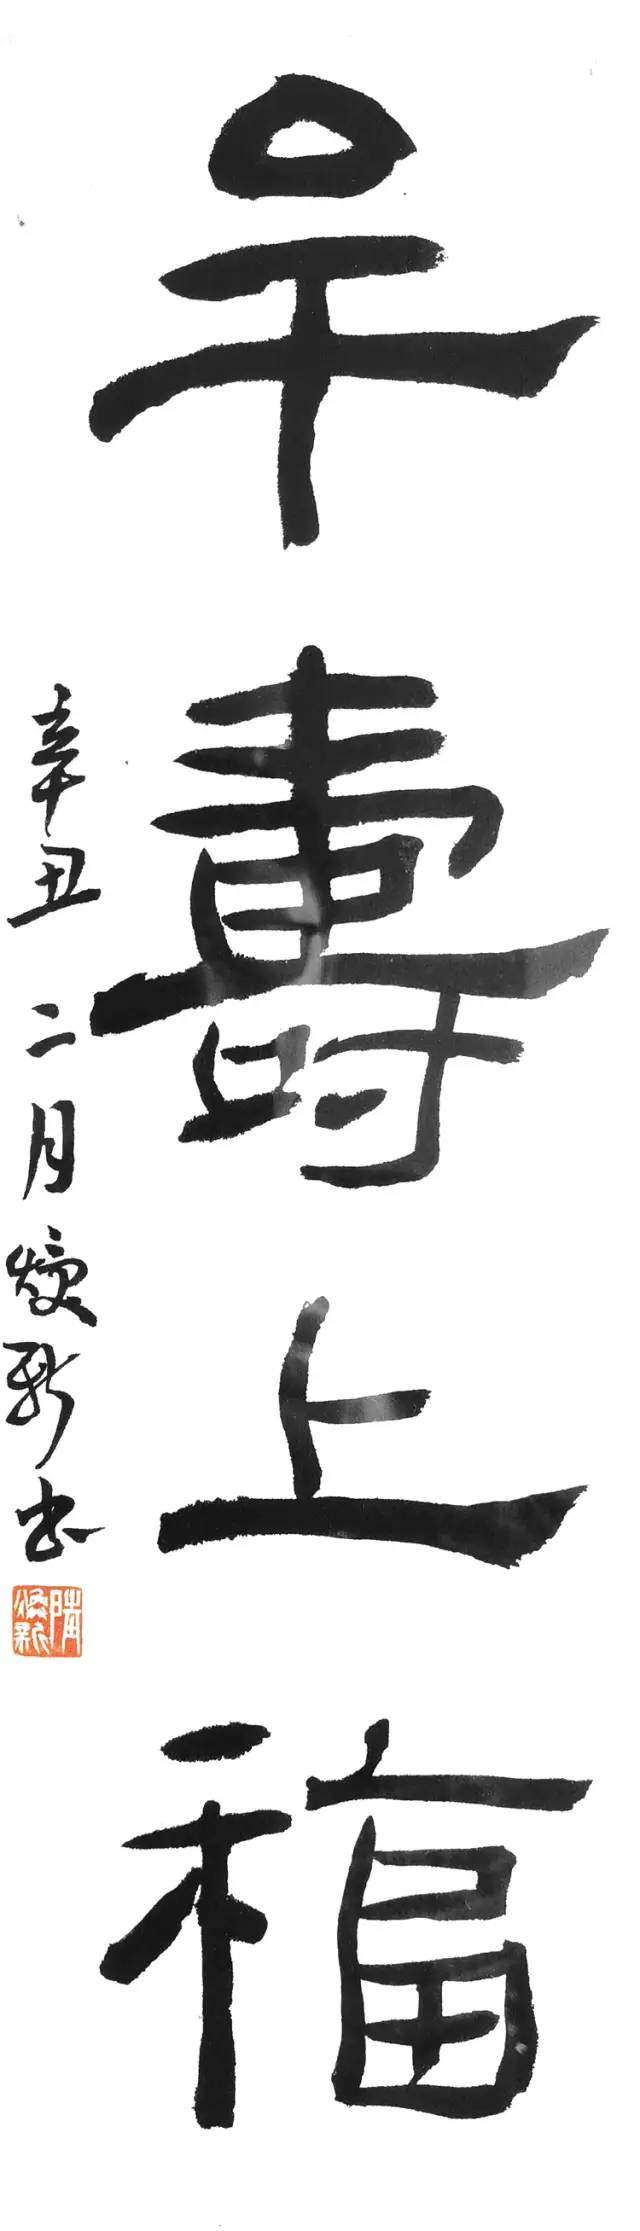 壽上福
辛丑二月煥新书